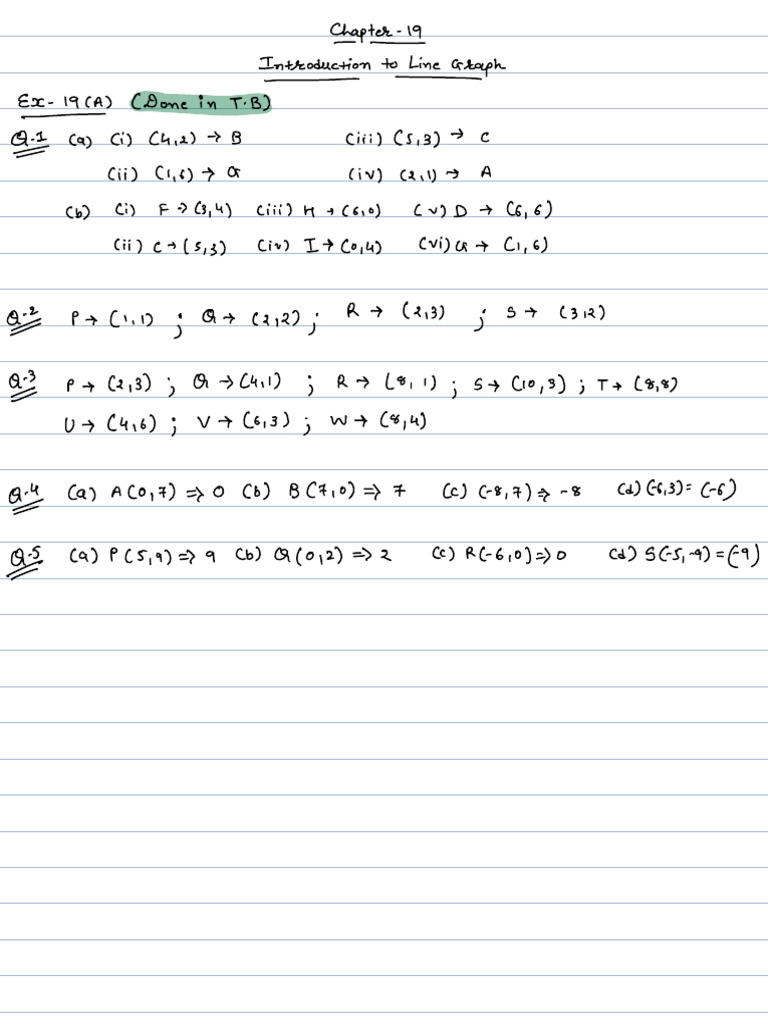 Chapter-19
Introduction to Line Graph
Ex- 19(A) (Done in T.B)
Q.1 (a) (i) (4,2) → B (iii) (5,3) → C
(ii) (1,6) → G (iv) (2,1) → A
(b) (i) F → (3,4) (iii) H → (6,0) (v) D → (6,6)
(ii) C → (5,3) (iv) I → (0,4) (vi) G → (1,6)
Q.2 P → (1,1) ; Q → (2,2) ; R → (2,3) ; S → (3,2)
Q.3 P → (2,3) ; Q → (4,1) ; R → (8,1) ; S → (10,3) ; T → (8,8)
U → (4,6) ; V → (6,3) ; W → (8,4)
Q.4 (a) A(0,7) ⇒ 0 (b) B(7,0) ⇒ 7 (c) (-8,7) ⇒ -8 (d) (-6,3) = (-6)
Q.5 (a) P(5,9) ⇒ 9 (b) Q(0,2) ⇒ 2 (c) R(-6,0) ⇒ 0 (d) S(-5,-9) = (-9)